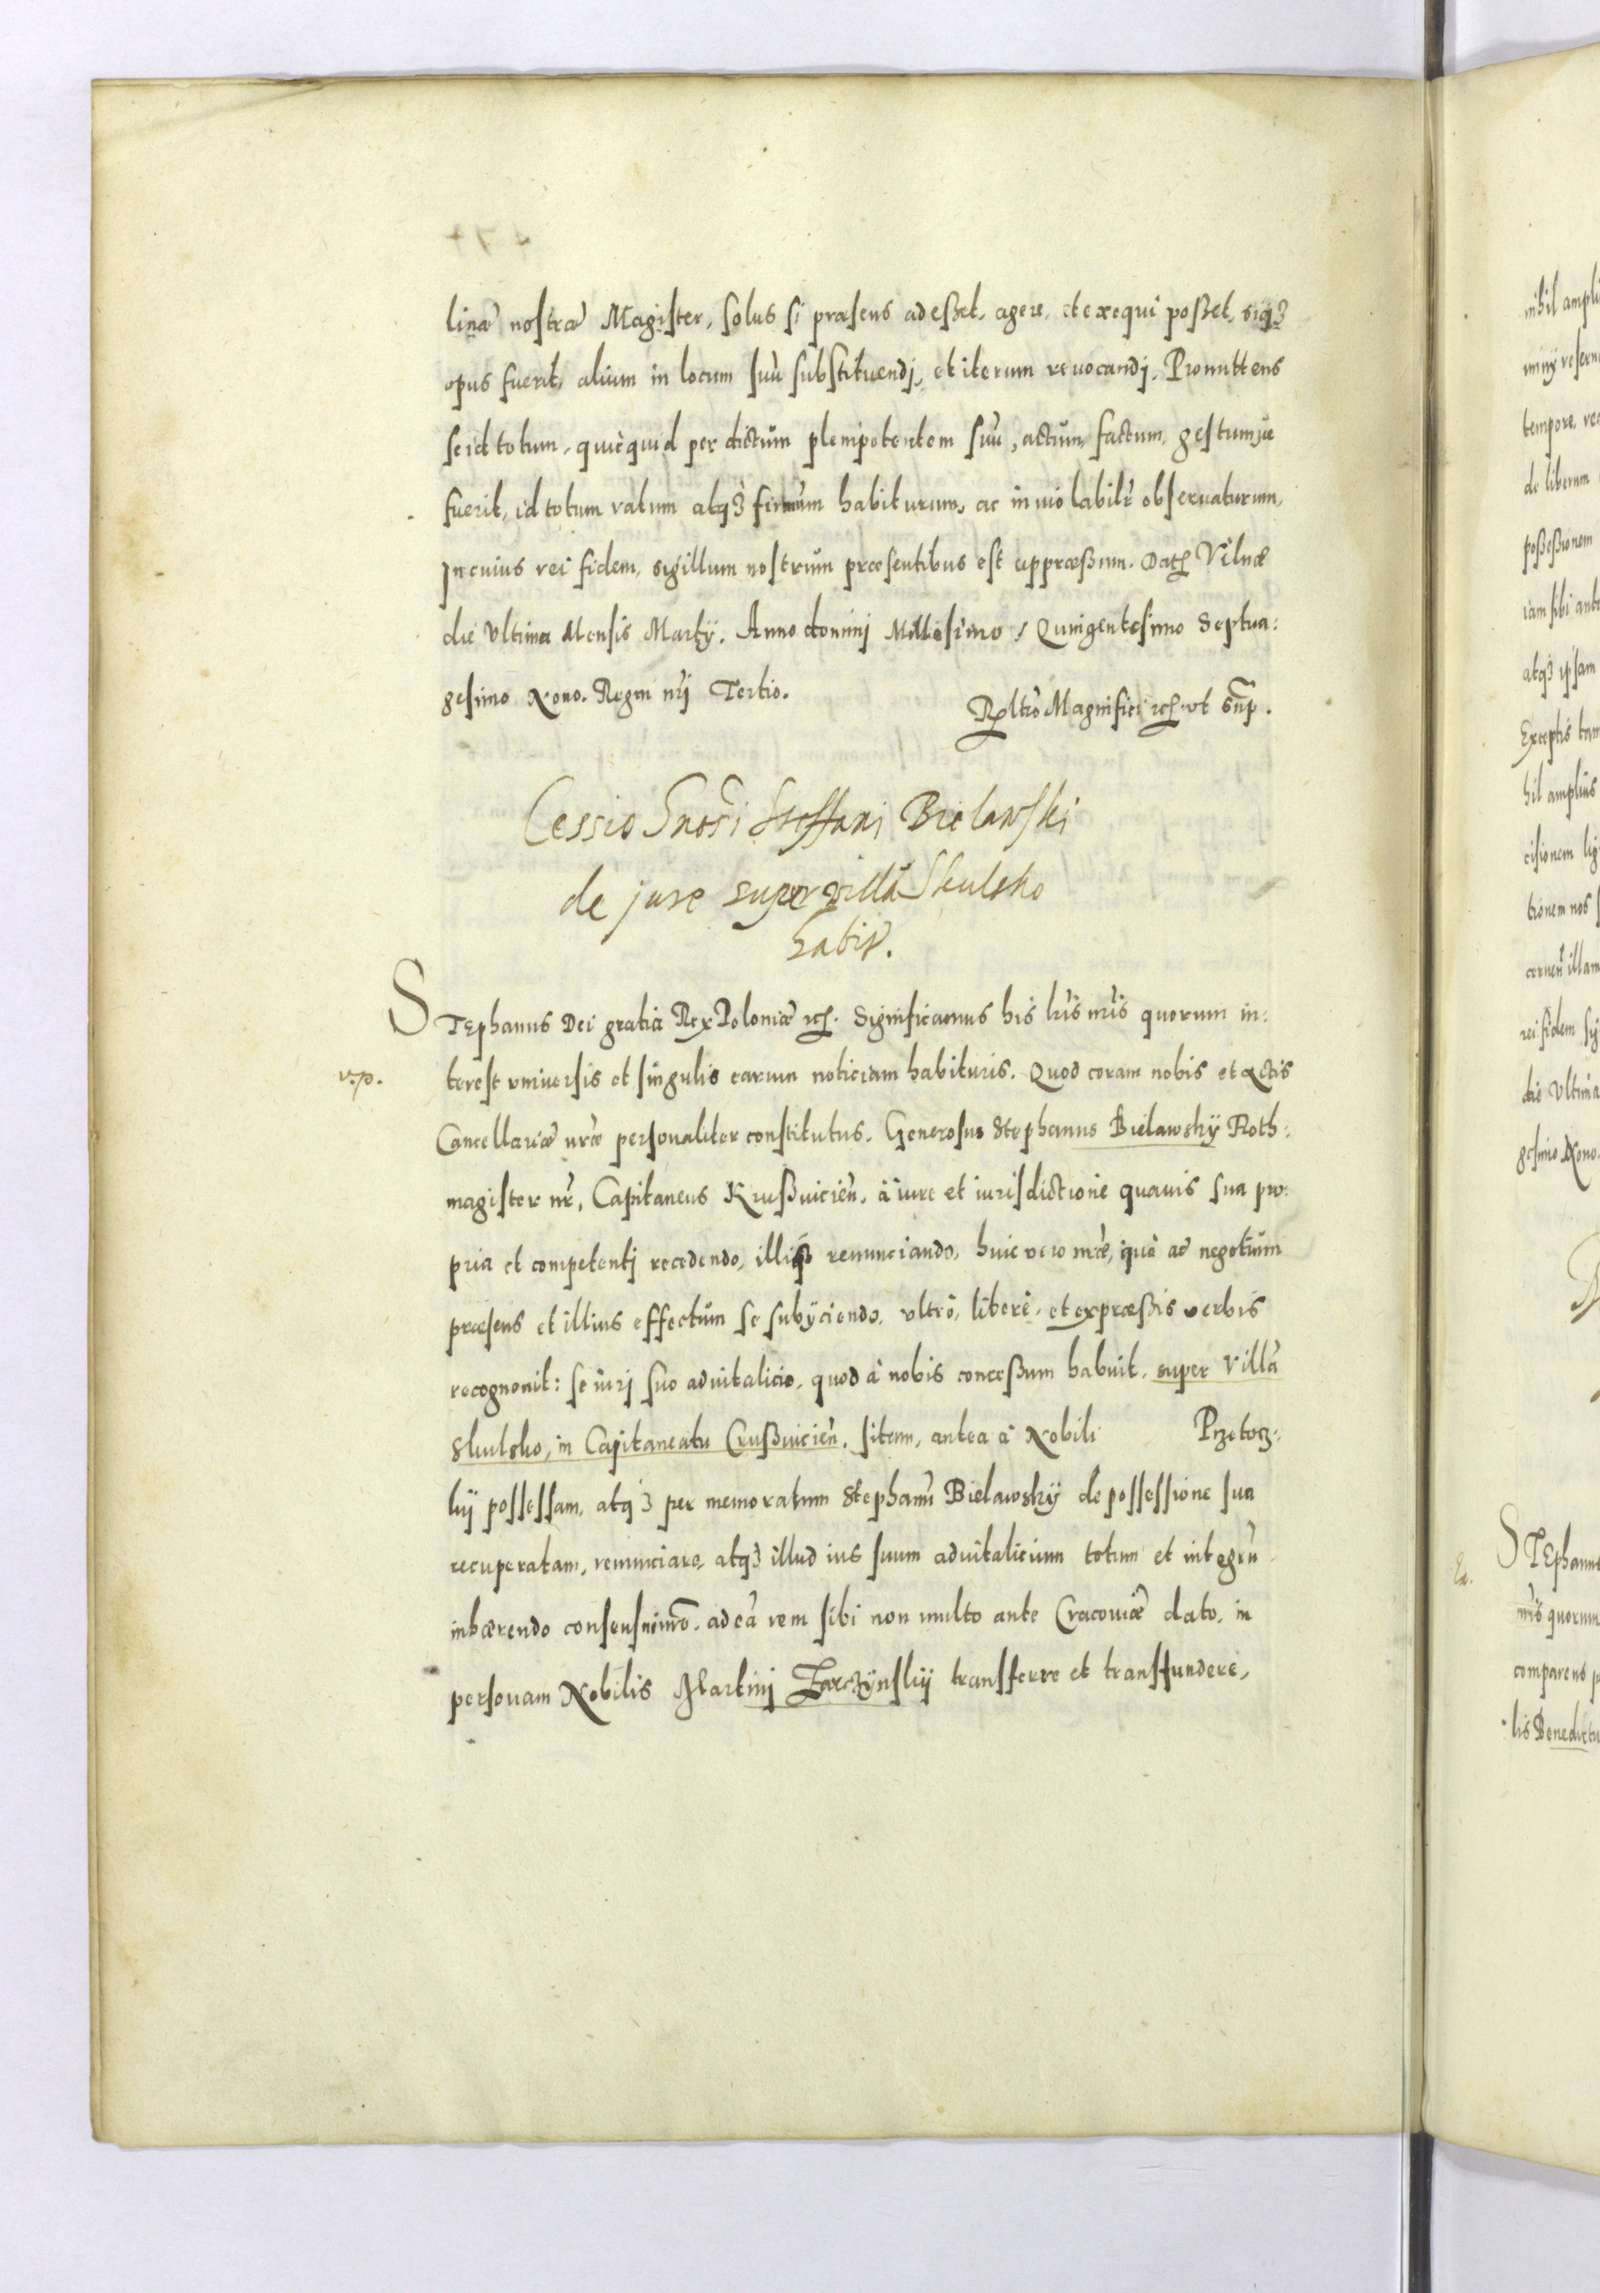 linæ nostræ Magister, solus si præsens adeßet, agere, et exequi poßet, siq3
opus fuerit, alium in locum suũ substituendj, et iterum reuocandj. Promittens
se id totum, quicquid per dictum plenipotentem suũ, actum, factum, gestumue
fuerit, id totum ratum atq3 firmum habiturum, ac inuiolabilr obseruaturum,
In cuius rei fidem, sigillum nostrum præsentibus est appræßum. Dat Vilnæ
die Vltima Mensis Martÿ. Anno dominj Millesimo Quingentesimo Septua:
gesimo Nono. Regni nrj Tertio.
Rltio Magnifici etc ut sup.
Cessio Gnosi Steffani Bielawski
de jure super villã Skulsko
habit.
STEphanus Dei gratia Rex Poloniæ etc. Significamus his lris nris quorum in:
v.p.
terest vniuersis et singulis earum noticiam habituris. Quod coram nobis et actis
Cancellariæ nræ personaliter constitutus. Generosus Stephanus Bielawskÿ Roth:
magister nr, Capitaneus Krußuicien̄. à iure et iurisdictione quauis sua pro:
pria et competentj recedendo, illiq3 renunciando, huic vero nræ, quò ad negotium
præsens et illius effectum se subÿciendo, vltrò, liberè, et expræßis verbis
recognouit: se iurj suo aduitalicio, quod à nobis conceßum habuit, super Villã
Skulsko, in Capitaneatu Crußuicien̄. sitam, antea à Nobili Przetocz:
kÿ possessam, atq3 per memoratum Stephanũ Bielawskÿ de possessione sua
recuperatam, renunciare, atq3 illud ius suum aduitalicium totum et integrũ
inhærendo consensui nro, ad eã rem sibi non multo ante Cracouiæ dato, in
personam Nobilis Martinj Zarczÿnskÿ transferre et transfundere,
nihil ampli
tempore, re
de liberum
poßeßionem
iam sibi ante
atq3 ipsam
Exceptis tam
hil amplius
cisionem lig
tionem nos
illam
rei fidem si
die Vltima
gesimo Nono.
STEphanus
nris quorum
comparens p
lis Benedictu